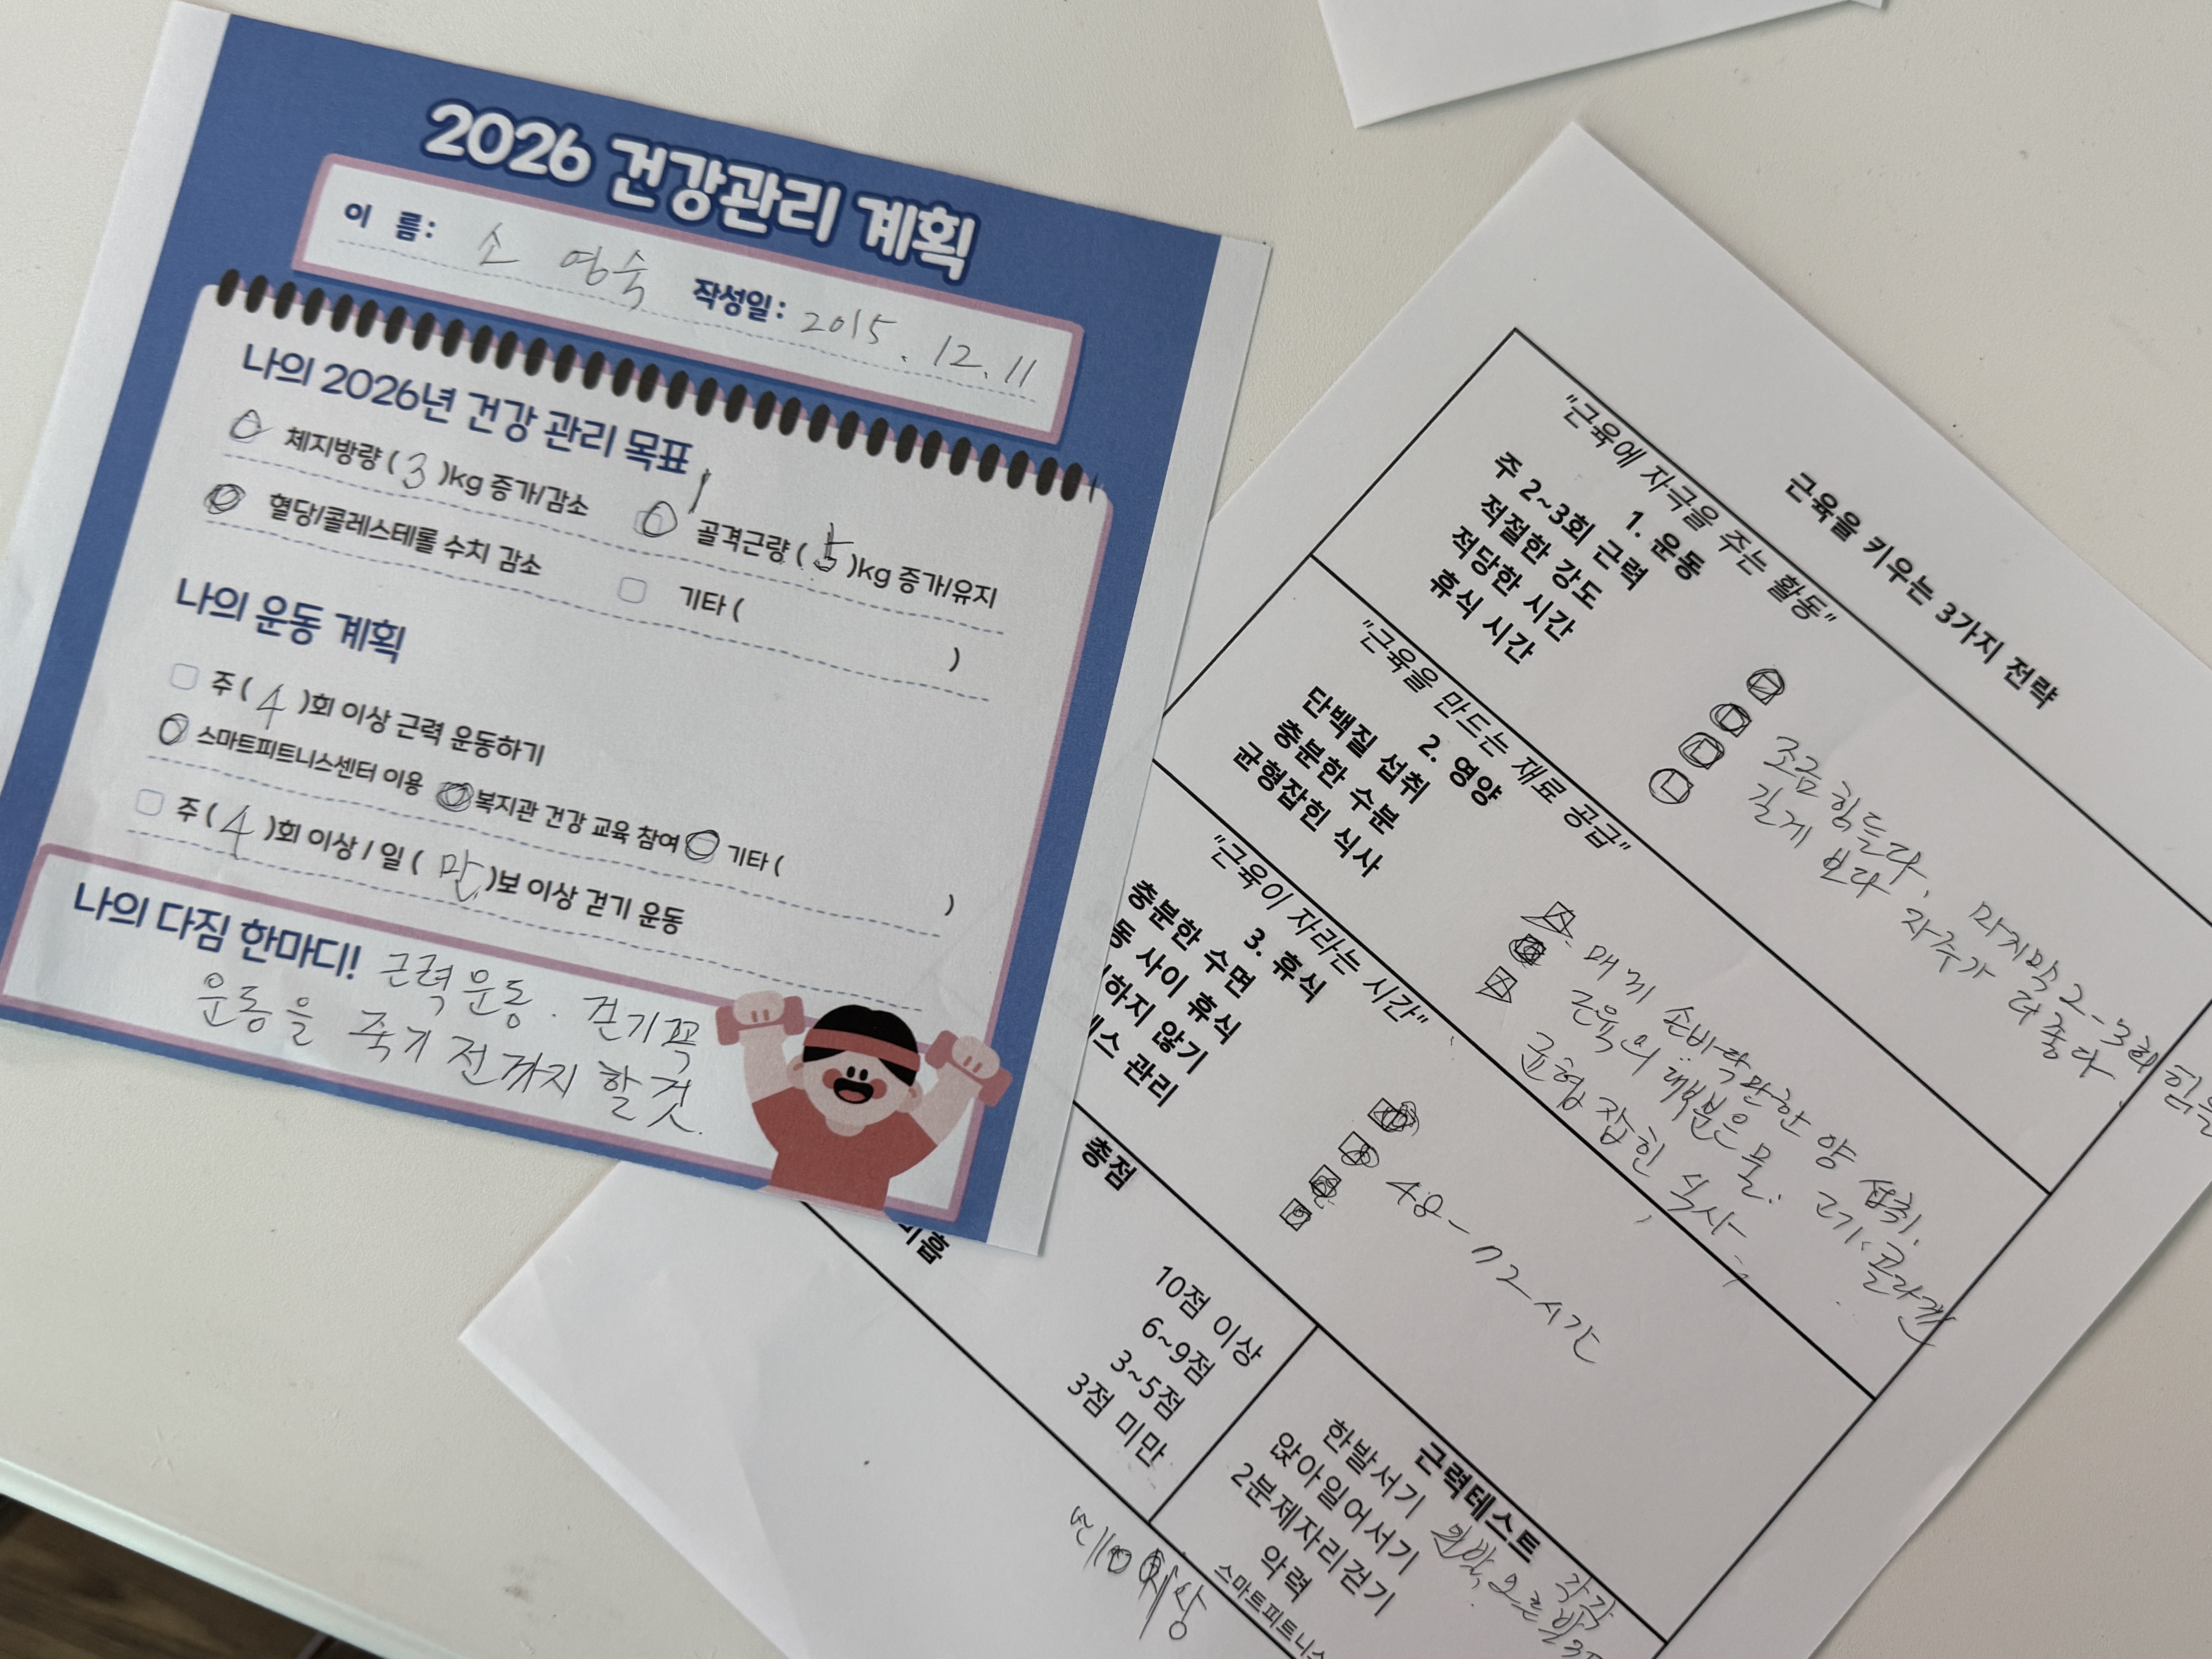 2026 건강관리 계획
이 름: 소 영숙 작성일: 2015. 12. 11
나의 2026년 건강 관리 목표
체지방량 (3)kg 증가/감소 골격근량 (5)kg 증가/유지
혈당/콜레스테롤 수치 감소 기타 ( )
나의 운동 계획
주 (4)회 이상 근력 운동하기
스마트피트니스센터 이용 복지관 건강 교육 참여 기타 ( )
주 (4)회 이상 / 일 (만)보 이상 걷기 운동
나의 다짐 한마디! 근력운동. 걷기꼭
운동을 죽기 전까지 할것.
근육을 키우는 3가지 전략
"근육에 자극을 주는 활동"
1. 운동
주 2~3회 근력
적절한 강도 조금 힘들다, 마지막 2-3회
적당한 시간 길게 보다 자주가 더 좋다
휴식 시간
"근육을 만드는 재료 공급"
2. 영양
단백질 섭취 매끼 손바닥만한 양 섭취.
충분한 수분 근육의 대부분은 물.
균형잡힌 식사 균형 잡힌 식사
"근육이 자라는 시간"
3. 휴식
충분한 수면
사이 휴식 48-72시간
하지 않기
관리
총점
10점 이상
6~9점
3~5점
3점 미만
근력테스트
한발서기
앉아일어서기
2분제자리걷기
악력
스마트피트니스